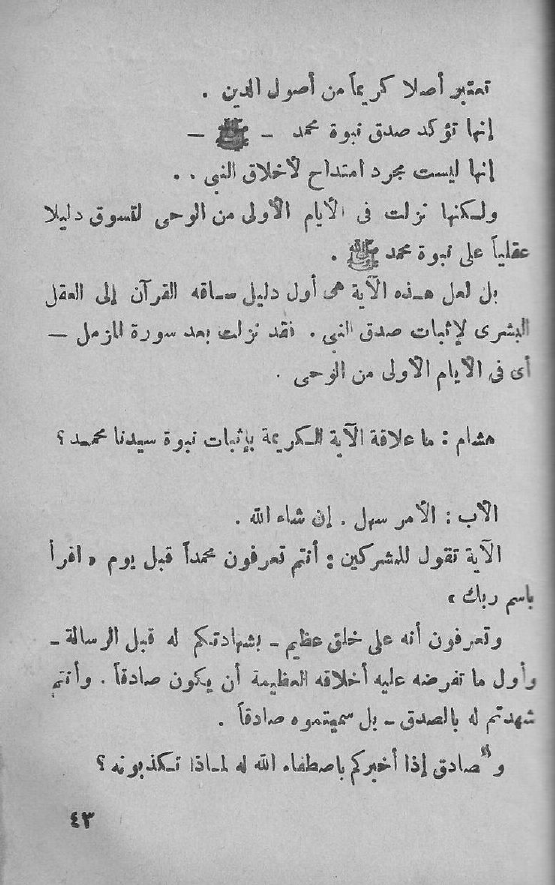 تعتبر أصلا كريماً من أصول الدين .
إنها تؤكد صدق نبوة محمد - ﷺ -
إنها ليست مجرد امتداح لأخلاق النبى . .
ولكنها نزلت فى الأيام الأولى من الوحى لتسوق دليلا
عقلياً على نبوة محمد ﷺ .
بل لعل هذه الآية هى أول دليل ساقه القرآن إلى العقل
البشرى لإثبات صدق النبى . فقد نزلت بعد سورة المزمل -
أى فى الأيام الأولى من الوحى .
هشام : ما علاقة الآية الكريمة بإثبات نبوة سيدنا محمد ؟
الأب : الأمر سهل . إن شاء الله .
الآية تقول للمشركين : أنتم تعرفون محمداً قبل يوم « اقرأ
باسم ربك »
وتعرفون أنه على خلق عظيم - بشهادتكم له قبل الرسالة -
وأول ما تفرضه عليه أخلاقه العظيمة أن يكون صادقاً . وأنتم
شهدتم له بالصدق - بل سميتموه صادقاً .
و"صادق إذا أخبركم باصطفاء الله له لماذا تكذبونه ؟
٤٣